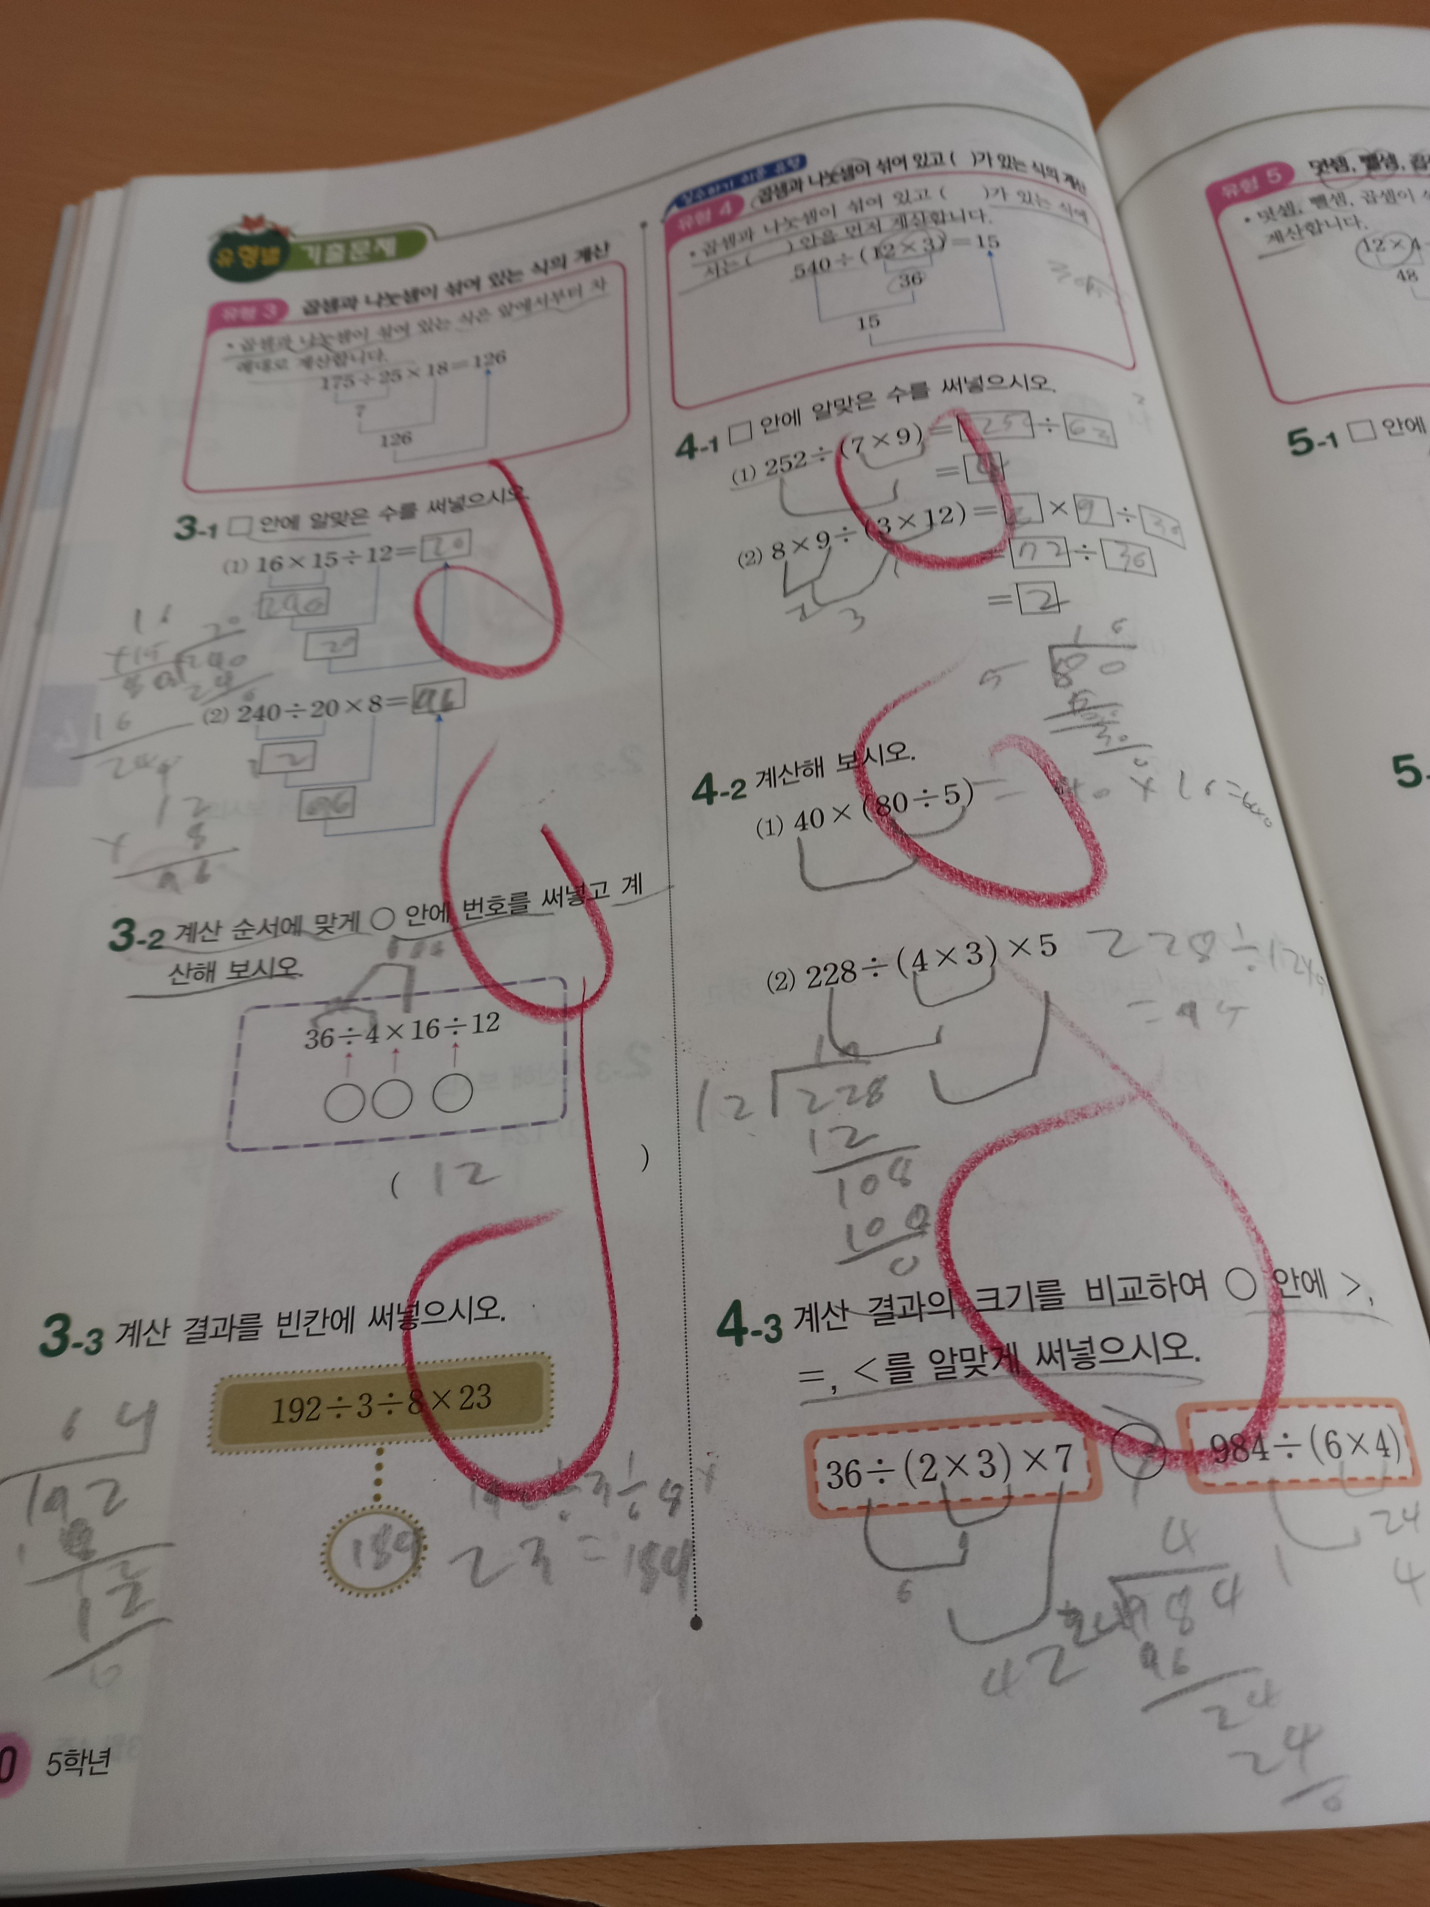 유형별 기출문제
유형 3 곱셈과 나눗셈이 섞여 있는 식의 계산
• 곱셈과 나눗셈이 섞여 있는 식은 앞에서부터 차
례대로 계산합니다.
175÷25×18=126
7
126
3-1 □ 안에 알맞은 수를 써넣으시오.
(1) 16×15÷12=20
240
20
(2) 240÷20×8=96
12
96
16
20
240
16
240
12
× 8
96
3-2 계산 순서에 맞게 ○ 안에 번호를 써넣고 계
산해 보시오.
36÷4×16÷12
( 12 )
3-3 계산 결과를 빈칸에 써넣으시오.
192÷3÷8×23
184
192÷3÷8×
23=184
64
192
18
12
0
5학년
실수하기 쉬운 유형
유형 4 곱셈과 나눗셈이 섞여 있고 ( )가 있는 식의 계산
• 곱셈과 나눗셈이 섞여 있고 ( )가 있는 식에
서는 ( ) 안을 먼저 계산합니다.
540÷(12×3)=15
36
15
4-1 □ 안에 알맞은 수를 써넣으시오.
(1) 252÷(7×9)=252÷63
=4
(2) 8×9÷(3×12)=8×9÷36
=72÷36
=2
1 2
3
16
5 80
0
4-2 계산해 보시오.
(1) 40×(80÷5)=40×16=640
(2) 228÷(4×3)×5
228÷12
=95
19
12 228
12
108
108
0
4-3 계산 결과의 크기를 비교하여 ○ 안에 >,
=, <를 알맞게 써넣으시오.
36÷(2×3)×7 > 984÷(6×4)
6
42
24
4
24 984
96
24
24
0
유형 5 덧셈, 뺄셈, 곱
• 덧셈, 뺄셈, 곱셈이
계산합니다.
12×4
48
5-1 □ 안에
5-